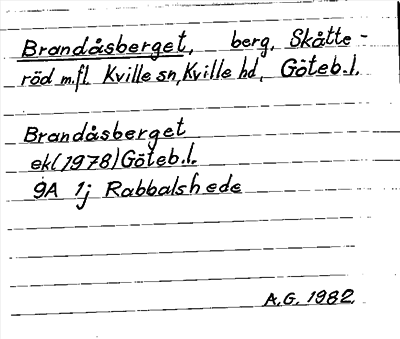 Brandåsberget, berg, Skåtte-
röd m.fl. Kville sn, Kville hd, Göteb.l.
Brandåsberget
ek(1978)Göteb.l.
9A 1j Rabbalshede
A.G. 1982.